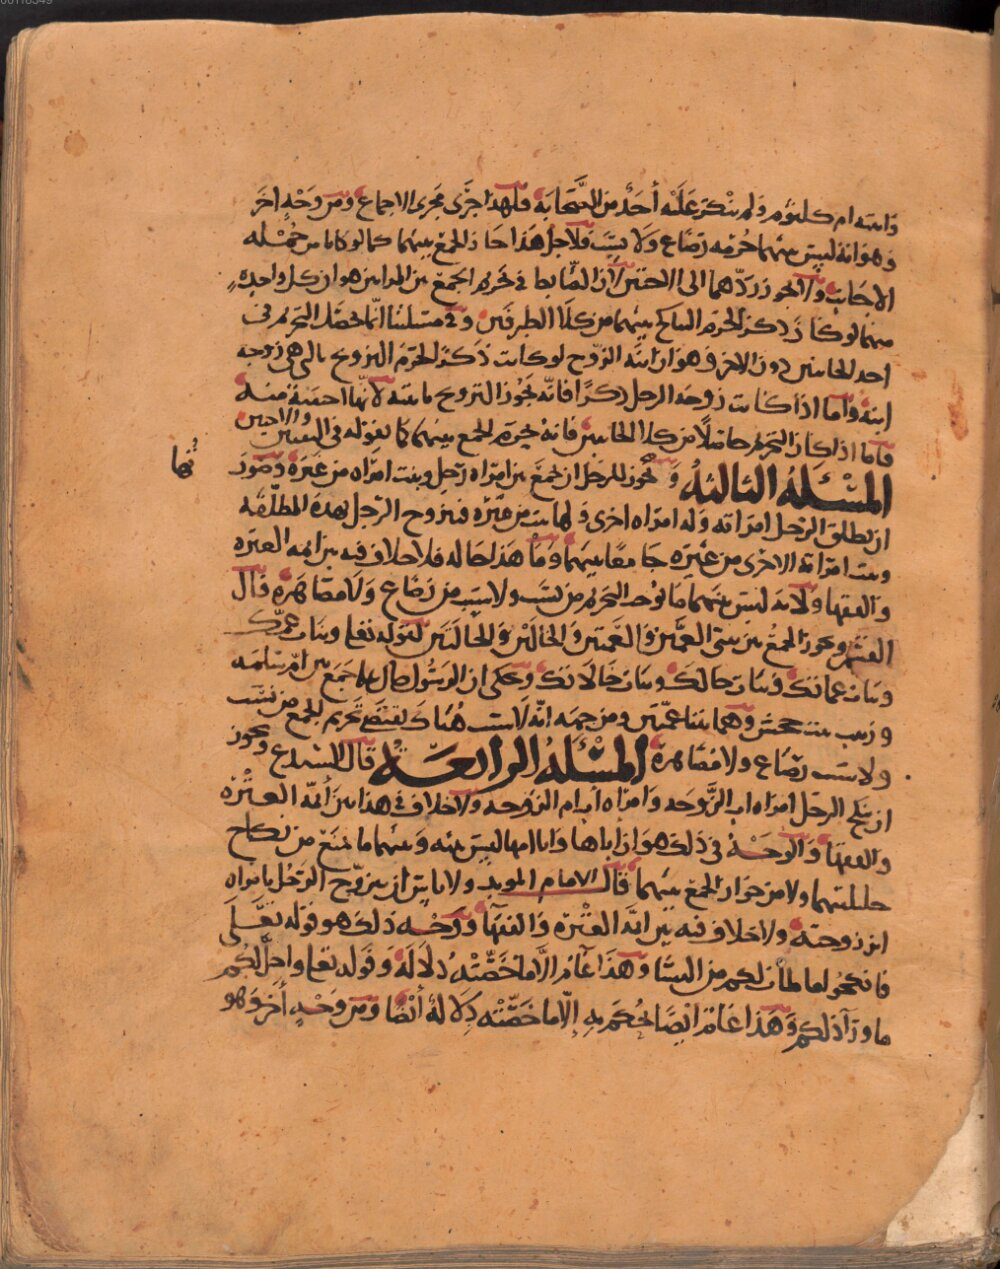 وابنته ام كلثوم ولم ينكر عليه أحد من الصحابة فلهذا جرى مجرى الاجماع ومن وجه اخر
وهو انه ليس بينهما حرمة رضاع ولا نسب فلأجل هذا جاز الجمع بينهما كما لو كانا من جملة
الاجانب ولا يجوز ردهما الى الاختين لأن المانع في تحريم الجمع بين المراتين هو ان كل واحدة
منهما لو كان ذكرا لحرم التناكح بينهما من كلا الطرفين وفي مسئلتنا انما حصل التحريم في
احد الجانبين دون الاخر وهو ان ابنة الزوج لو كانت ذكرا لحرم التزويج بالتي هي زوجه
ابيه وأما اذا كانت زوجة الرجل ذكرا فانه يجوز التزويج بابنته لانها اجنبية منه
فأما اذا كان التحريم حاصلا من كلا الجانبين فانه يحرم الجمع بينهما كما نقوله في البنتين والاختين
المسئلة الثالثة ويجوز للرجل ان يجمع بين امراة رجل وبنت امراة من غيره وصورته
ان يطلق الرجل امراته وله امراة اخرى ولها بنت من غيره فيتزوج الرجل بهذه المطلقه
وبنت امراته الاخرى من غيره جامعا بينهما وما هذا حاله فلا خلاف فيه بين ائمة العترة
والفقها ولانه ليس بينهما ما يوجب التحريم من نسب ولا سبب من رضاع ولا مصاهرة قال
القسم ويجوز الجمع بين بنتي العمين والعمتين والخالين والخالتين لقوله تعلى وبنات عمك
وبنات عماتك وبنات خالك وبنات خالاتك وحكي ان الرسول صلى الله جمع بين ام سلمه
وزينب بنت جحش وهما بنتا عمتين ومن جهة انه لا سبب هناك يقتضي تحريم الجمع من نسب
ولا سبب رضاع ولا مصاهرة المسئلة الرابعة قال ويجوز
ان ينكح الرجل امراة اب الزوجة وامراة ام الزوجه ولا خلاف في هذا بين أئمة العترة
والفقها والوجه في ذلك هو ان اباها وابا امها ليس بينه وبينهما ما يمنع من نكاح
حليلتيهما ولا من جواز الجمع بينهما قال الامام المويد ولا باس ان يتزوج الرجل بامراة
ابن زوجته ولا خلاف فيه بين ائمة العترة والفقهآ ووجه ذلك هو قوله تعلى
فانكحوا ما طاب لكم من النسا وهذا عام الا ما خصته دلالة وقوله تعلى واحل لكم
ما ورآ ذلكم وهذا عام ايضا يحكم به إلا ما خصته دلالة أيضا ومن وجه أخر وهو